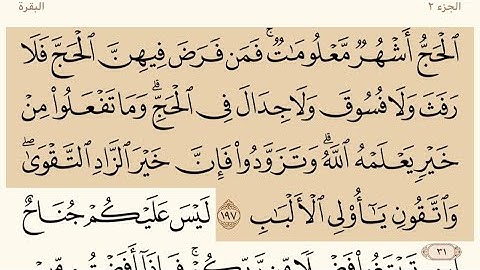 الجزء ٢ البقرة
ٱلْحَجُّ أَشْهُرٌ مَّعْلُومَٰتٌ ۚ فَمَن فَرَضَ فِيهِنَّ ٱلْحَجَّ فَلَا
رَفَثَ وَلَا فُسُوقَ وَلَا جِدَالَ فِى ٱلْحَجِّ ۗ وَمَا تَفْعَلُوا۟ مِنْ
خَيْرٍ يَعْلَمْهُ ٱللَّهُ ۗ وَتَزَوَّدُوا۟ فَإِنَّ خَيْرَ ٱلزَّادِ ٱلتَّقْوَىٰ ۖ
وَٱتَّقُونِ يَٰٓأُو۟لِى ٱلْأَلْبَٰبِ ١٩٧ لَيْسَ عَلَيْكُمْ جُنَاحٌ
٣١